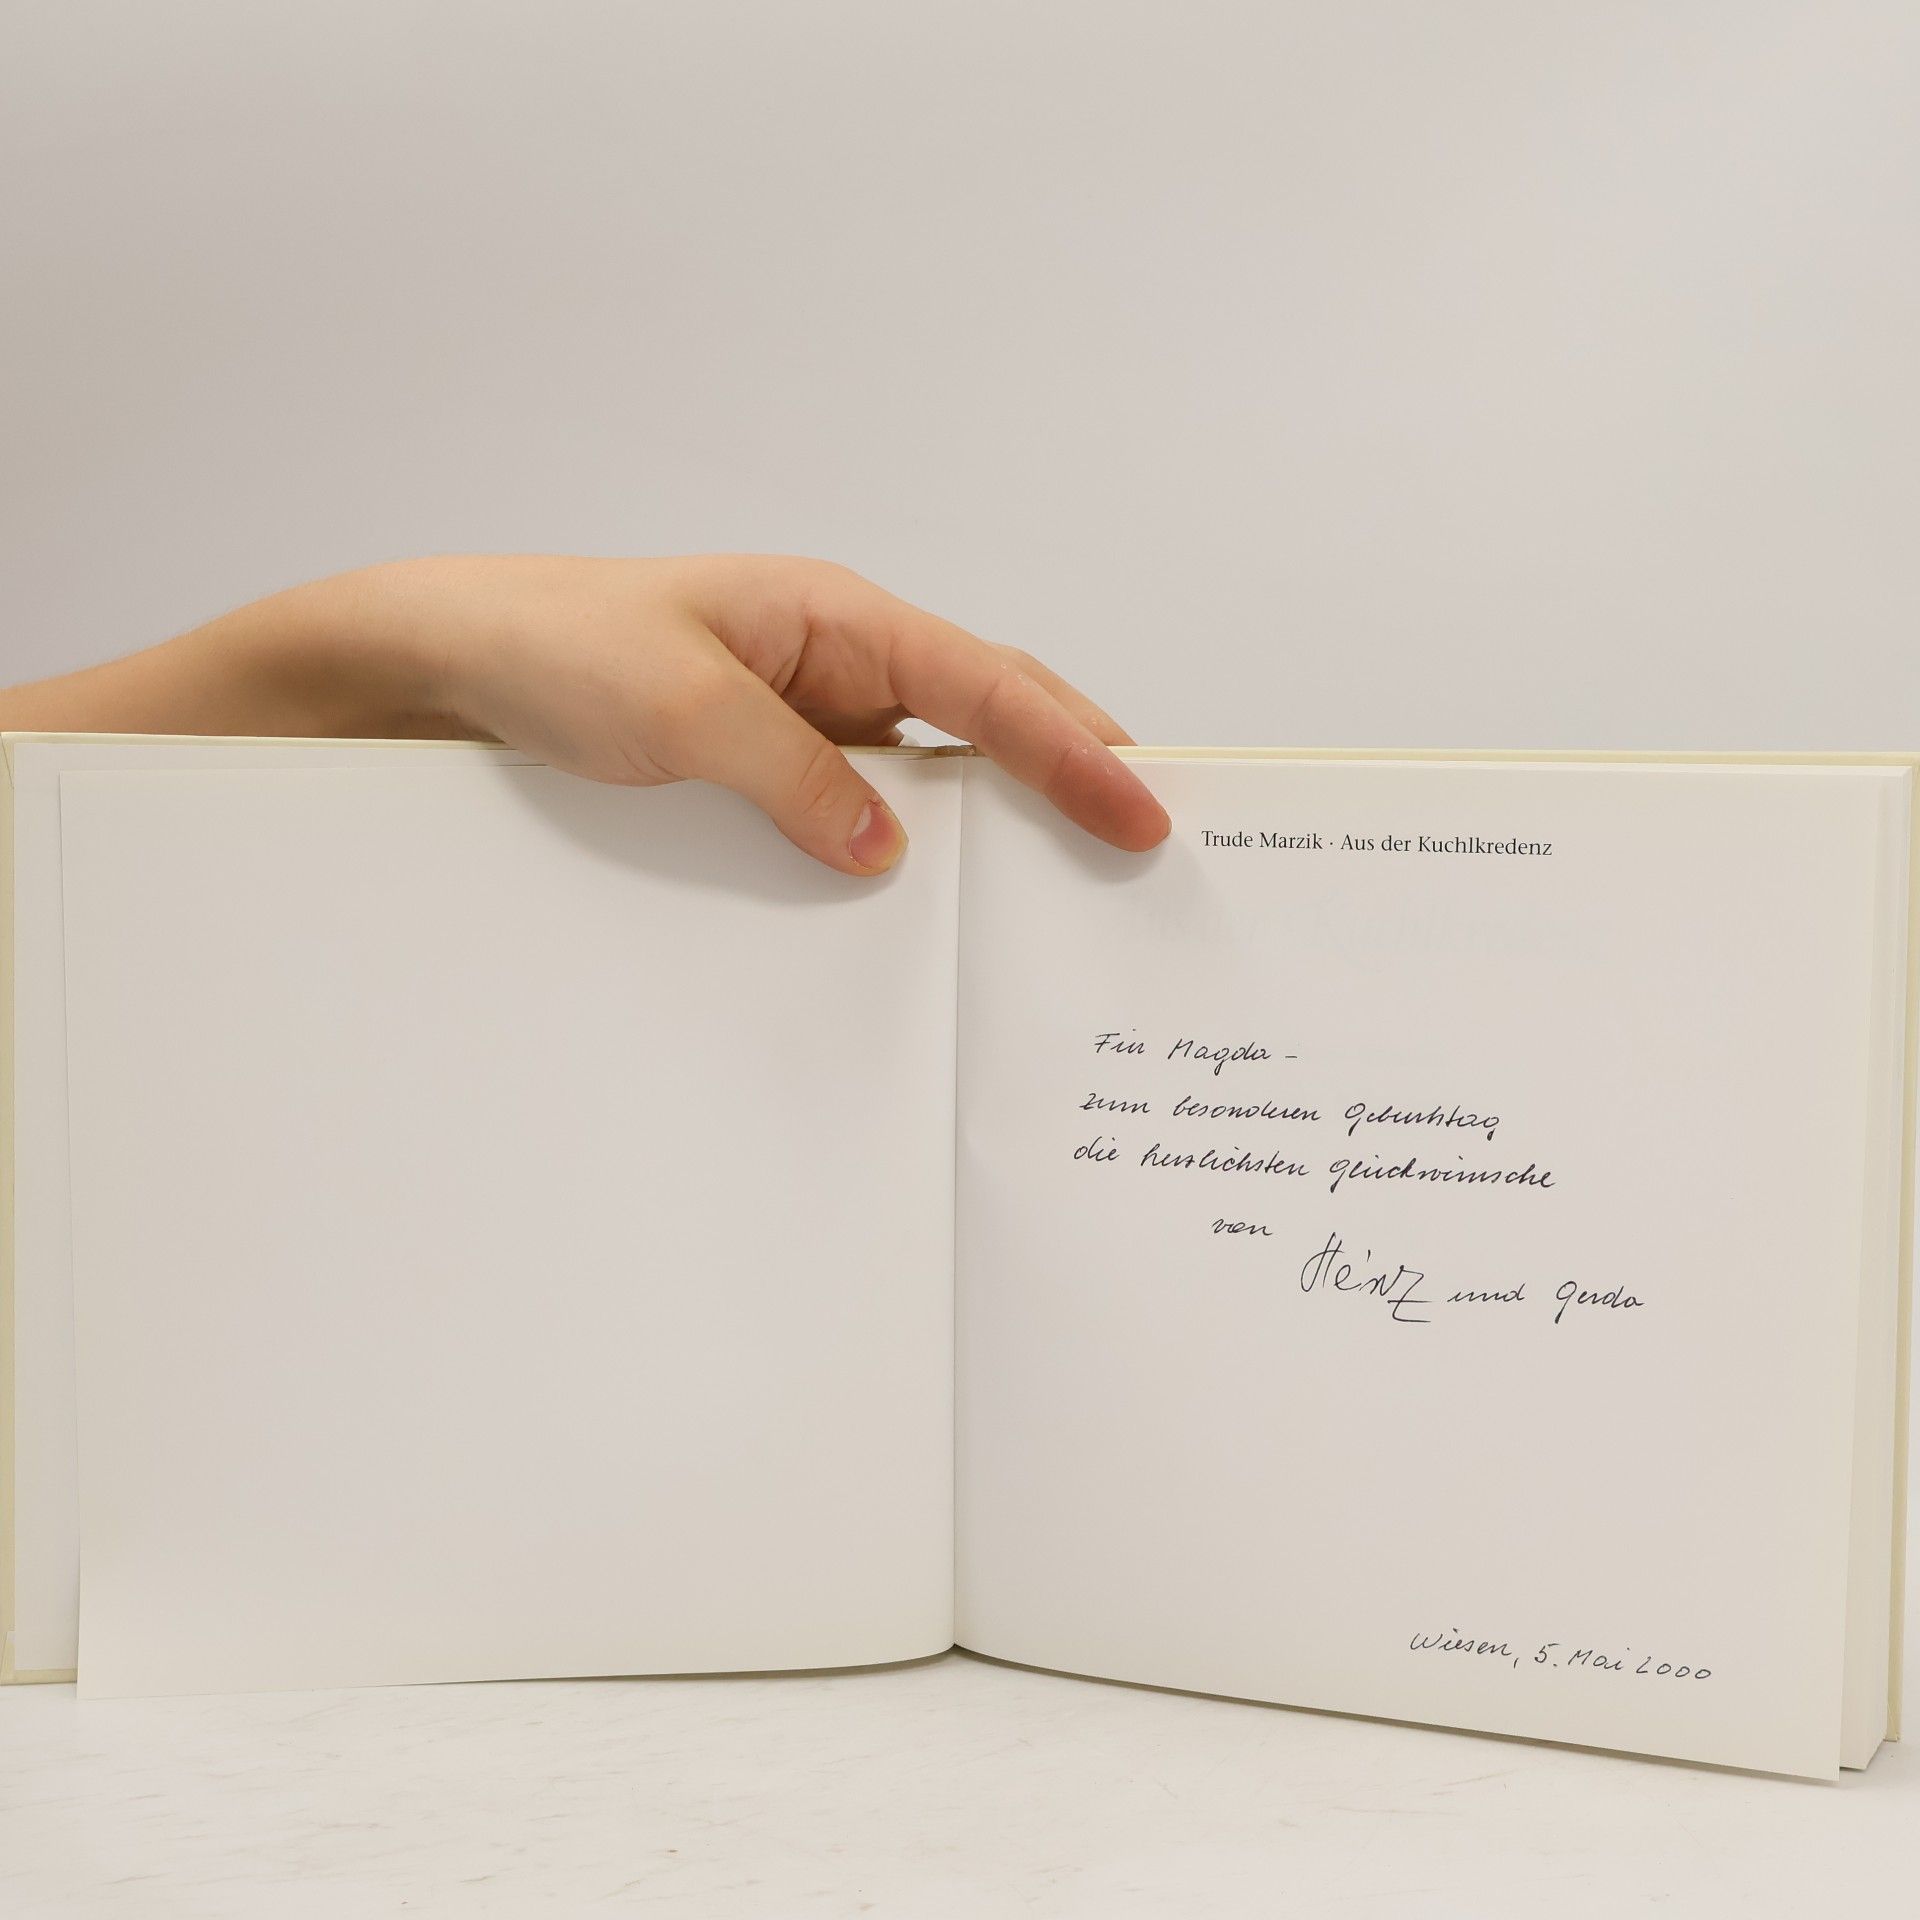 Trude Marzik · Aus der Kuchlkredenz
Für Magda –
zum besonderen Geburtstag
die herzlichsten Glückwünsche
von
Heinz und Gerda
Wiesen, 5. Mai 2000